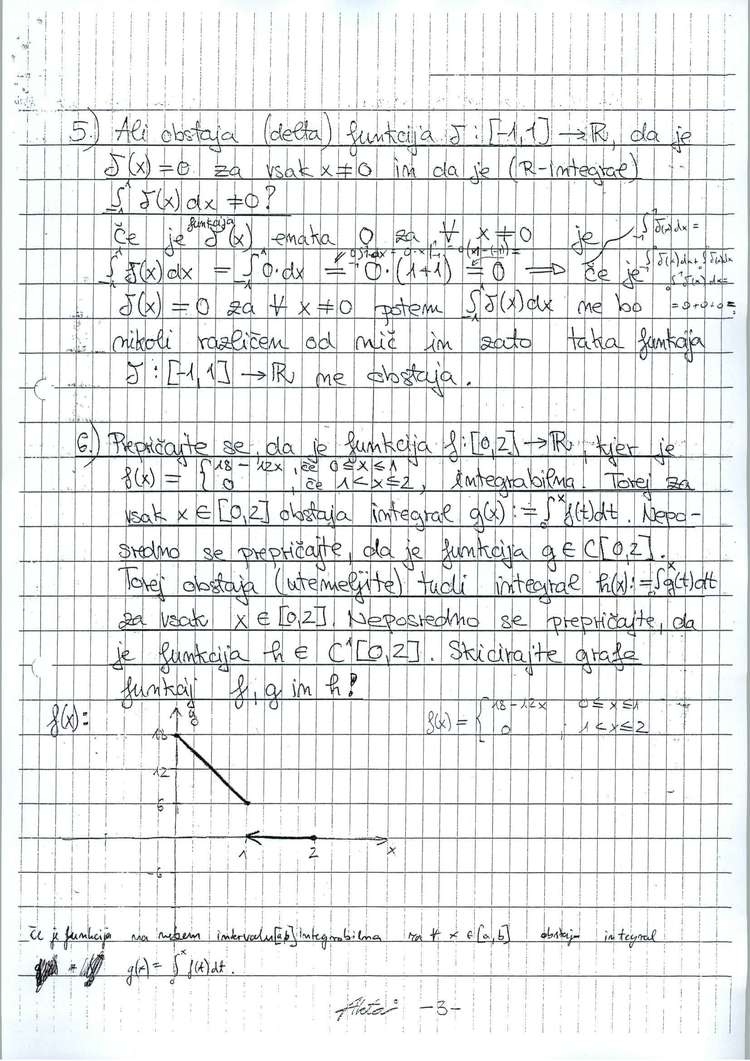 5.) Ali obstaja (delta) funkcija δ : [-1,1] → R, da je
δ(x) = 0 za vsak x ≠ 0 in da je (R-integral)
∫₋₁¹ δ(x) dx ≠ 0?
Če je funkcija δ(x) enaka 0 za ∀ x ≠ 0 je
∫₋₁¹ δ(x) dx = ∫₋₁¹ 0·dx = 0·(1+1) = 0 ⟹ če je
δ(x) = 0 za ∀ x ≠ 0 potem ∫₋₁¹ δ(x) dx ne bo
nikoli različen od nič in zato taka funkcija
δ : [-1,1] → R ne obstaja.
∫₋₁¹ δ(x) dx =
= 0 + 0 + 0 =
6.) Prepričajte se, da je funkcija f : [0,2] → R, kjer je
f(x) = { 18 - 12x, če 0 ≤ x ≤ 1
0 , če 1 < x ≤ 2, integrabilna. Torej za
vsak x ∈ [0,2] obstaja integral g(x) := ∫₀ˣ f(t) dt. Nepo-
sredno se prepričajte, da je funkcija g ∈ C[0,2].
Torej obstaja (utemeljite) tudi integral h(x) := ∫₀ˣ g(t) dt
za vsak x ∈ [0,2]. Neposredno se prepričajte, da
je funkcija h ∈ C¹[0,2]. Skicirajte grafe
funkcij f, g in h!
f(x):
y
f(x) = { 18 - 12x 0 ≤ x ≤ 1
0 , 1 < x ≤ 2
18
12
6
1 2 x
-6
Če je funkcija na nekem intervalu [a,b] integrabilna za ∀ x ∈ [a,b] obstaja integral
g(x) = ∫₀ˣ f(t) dt.
-3-